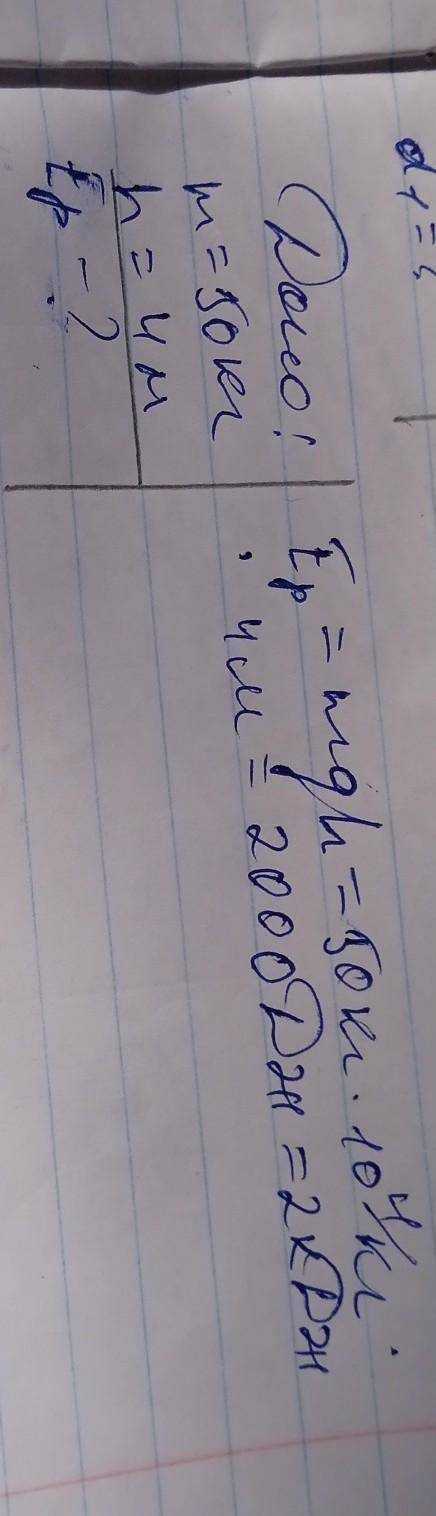 d₁ = ?
Дано:
m = 50 кг
h = 4 м
Eр - ?
Eр = mgh = 50 кг · 10 Н/кг ·
· 4 м = 2000 Дж = 2 кДж